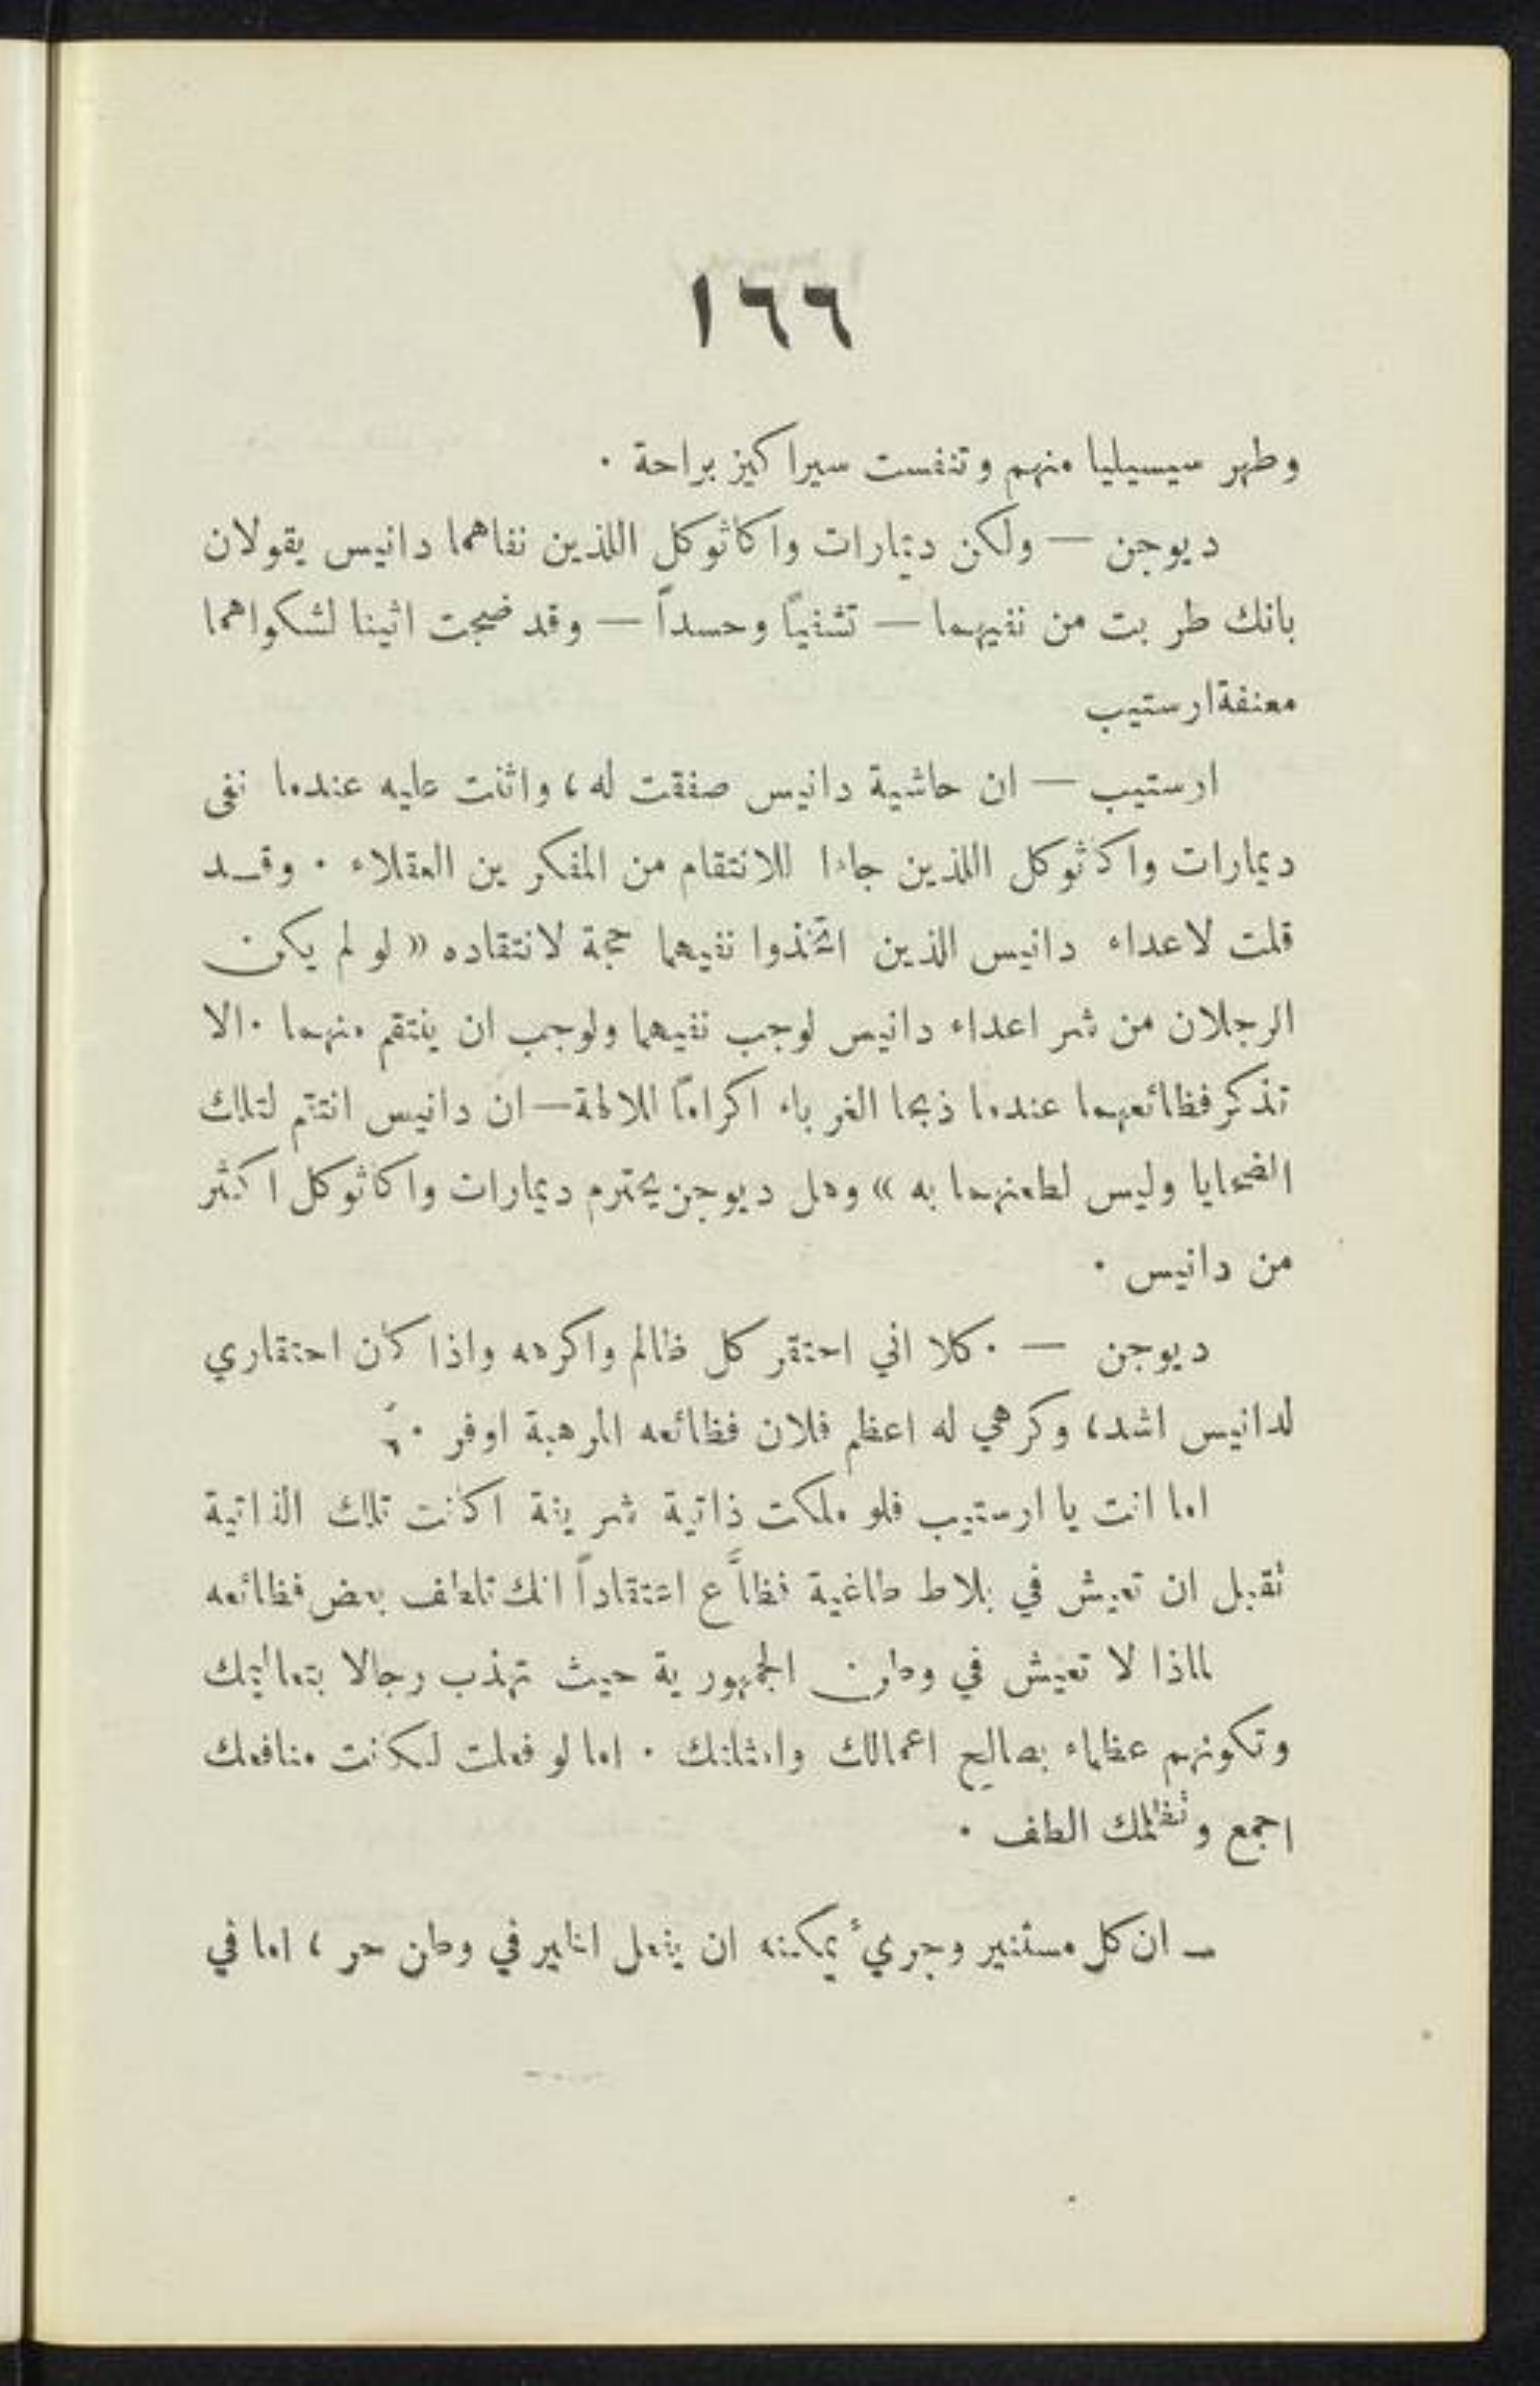 ١٦٦
وطهر سيسيليا منهم وتنفست سيراكيز براحة .
ديوجن — ولكن ديمارات واكاثوكل اللذين نفاهما دانيس يقولان
بانك طربت من نفيهما — تشفيًا وحسداً — وقد ضجت اثينا لشكواهما
معنفة ارستيب
ارستيب — ان حاشية دانيس صفقت له ، واثنت عليه عندما نفى
ديمارات واكاثوكل اللذين جاءا للانتقام من المفكرين العقلاء . وقد
قلت لاعداء دانيس الذين اتخذوا نفيهما حجة لانتقاده « لو لم يكن
الرجلان من شر اعداء دانيس لوجب نفيهما ولوجب ان ينتقم منهما . الا
تذكر فظائعهما عندما ذبحا الغرباء اكرامًا للالهة — ان دانيس انتقم لتلك
الضحايا وليس لطعنهما به » وهل ديوجن يحترم ديمارات واكاثوكل اكثر
من دانيس .
ديوجن — . كلا اني احتقر كل ظالم واكرهه واذا كان احتقاري
لدانيس اشد ، وكرهي له اعظم فلان فظائعه المرهبة اوفر .
اما انت يا ارستيب فلو ملكت ذاتية شريفة اكانت تلك الذاتية
تقبل ان تعيش في بلاط طاغية فظاًّع اعتقاداً انك تلطف بعض فظائعه
لماذا لا تعيش في وطن الجمهورية حيث تهذب رجالا بتعاليمك
وتكونهم عظماء بصالح اعمالك وامثلتك . اما لو فعلت لكانت منافعك
اجمع وتظلمك الطف .
— ان كل مستنير وجريءٔ يمكنه ان يفعل الخير في وطن حر ، اما في